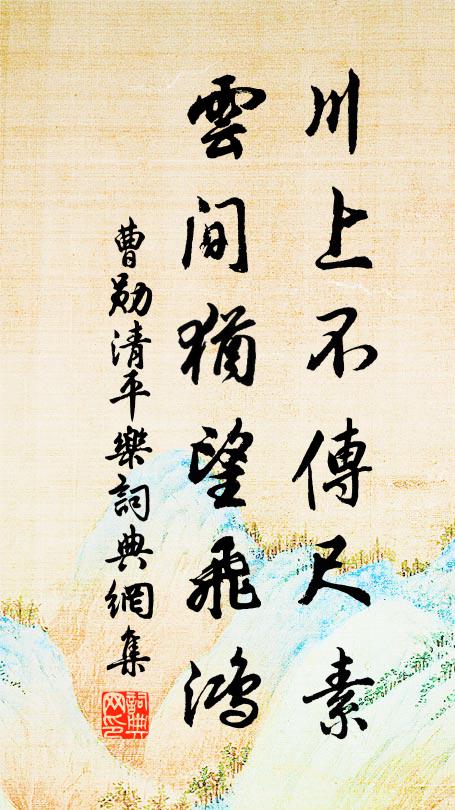 川上不傳尺素
雲間猶望飛鴻
曹勛清平樂詞典網集
詞典網印